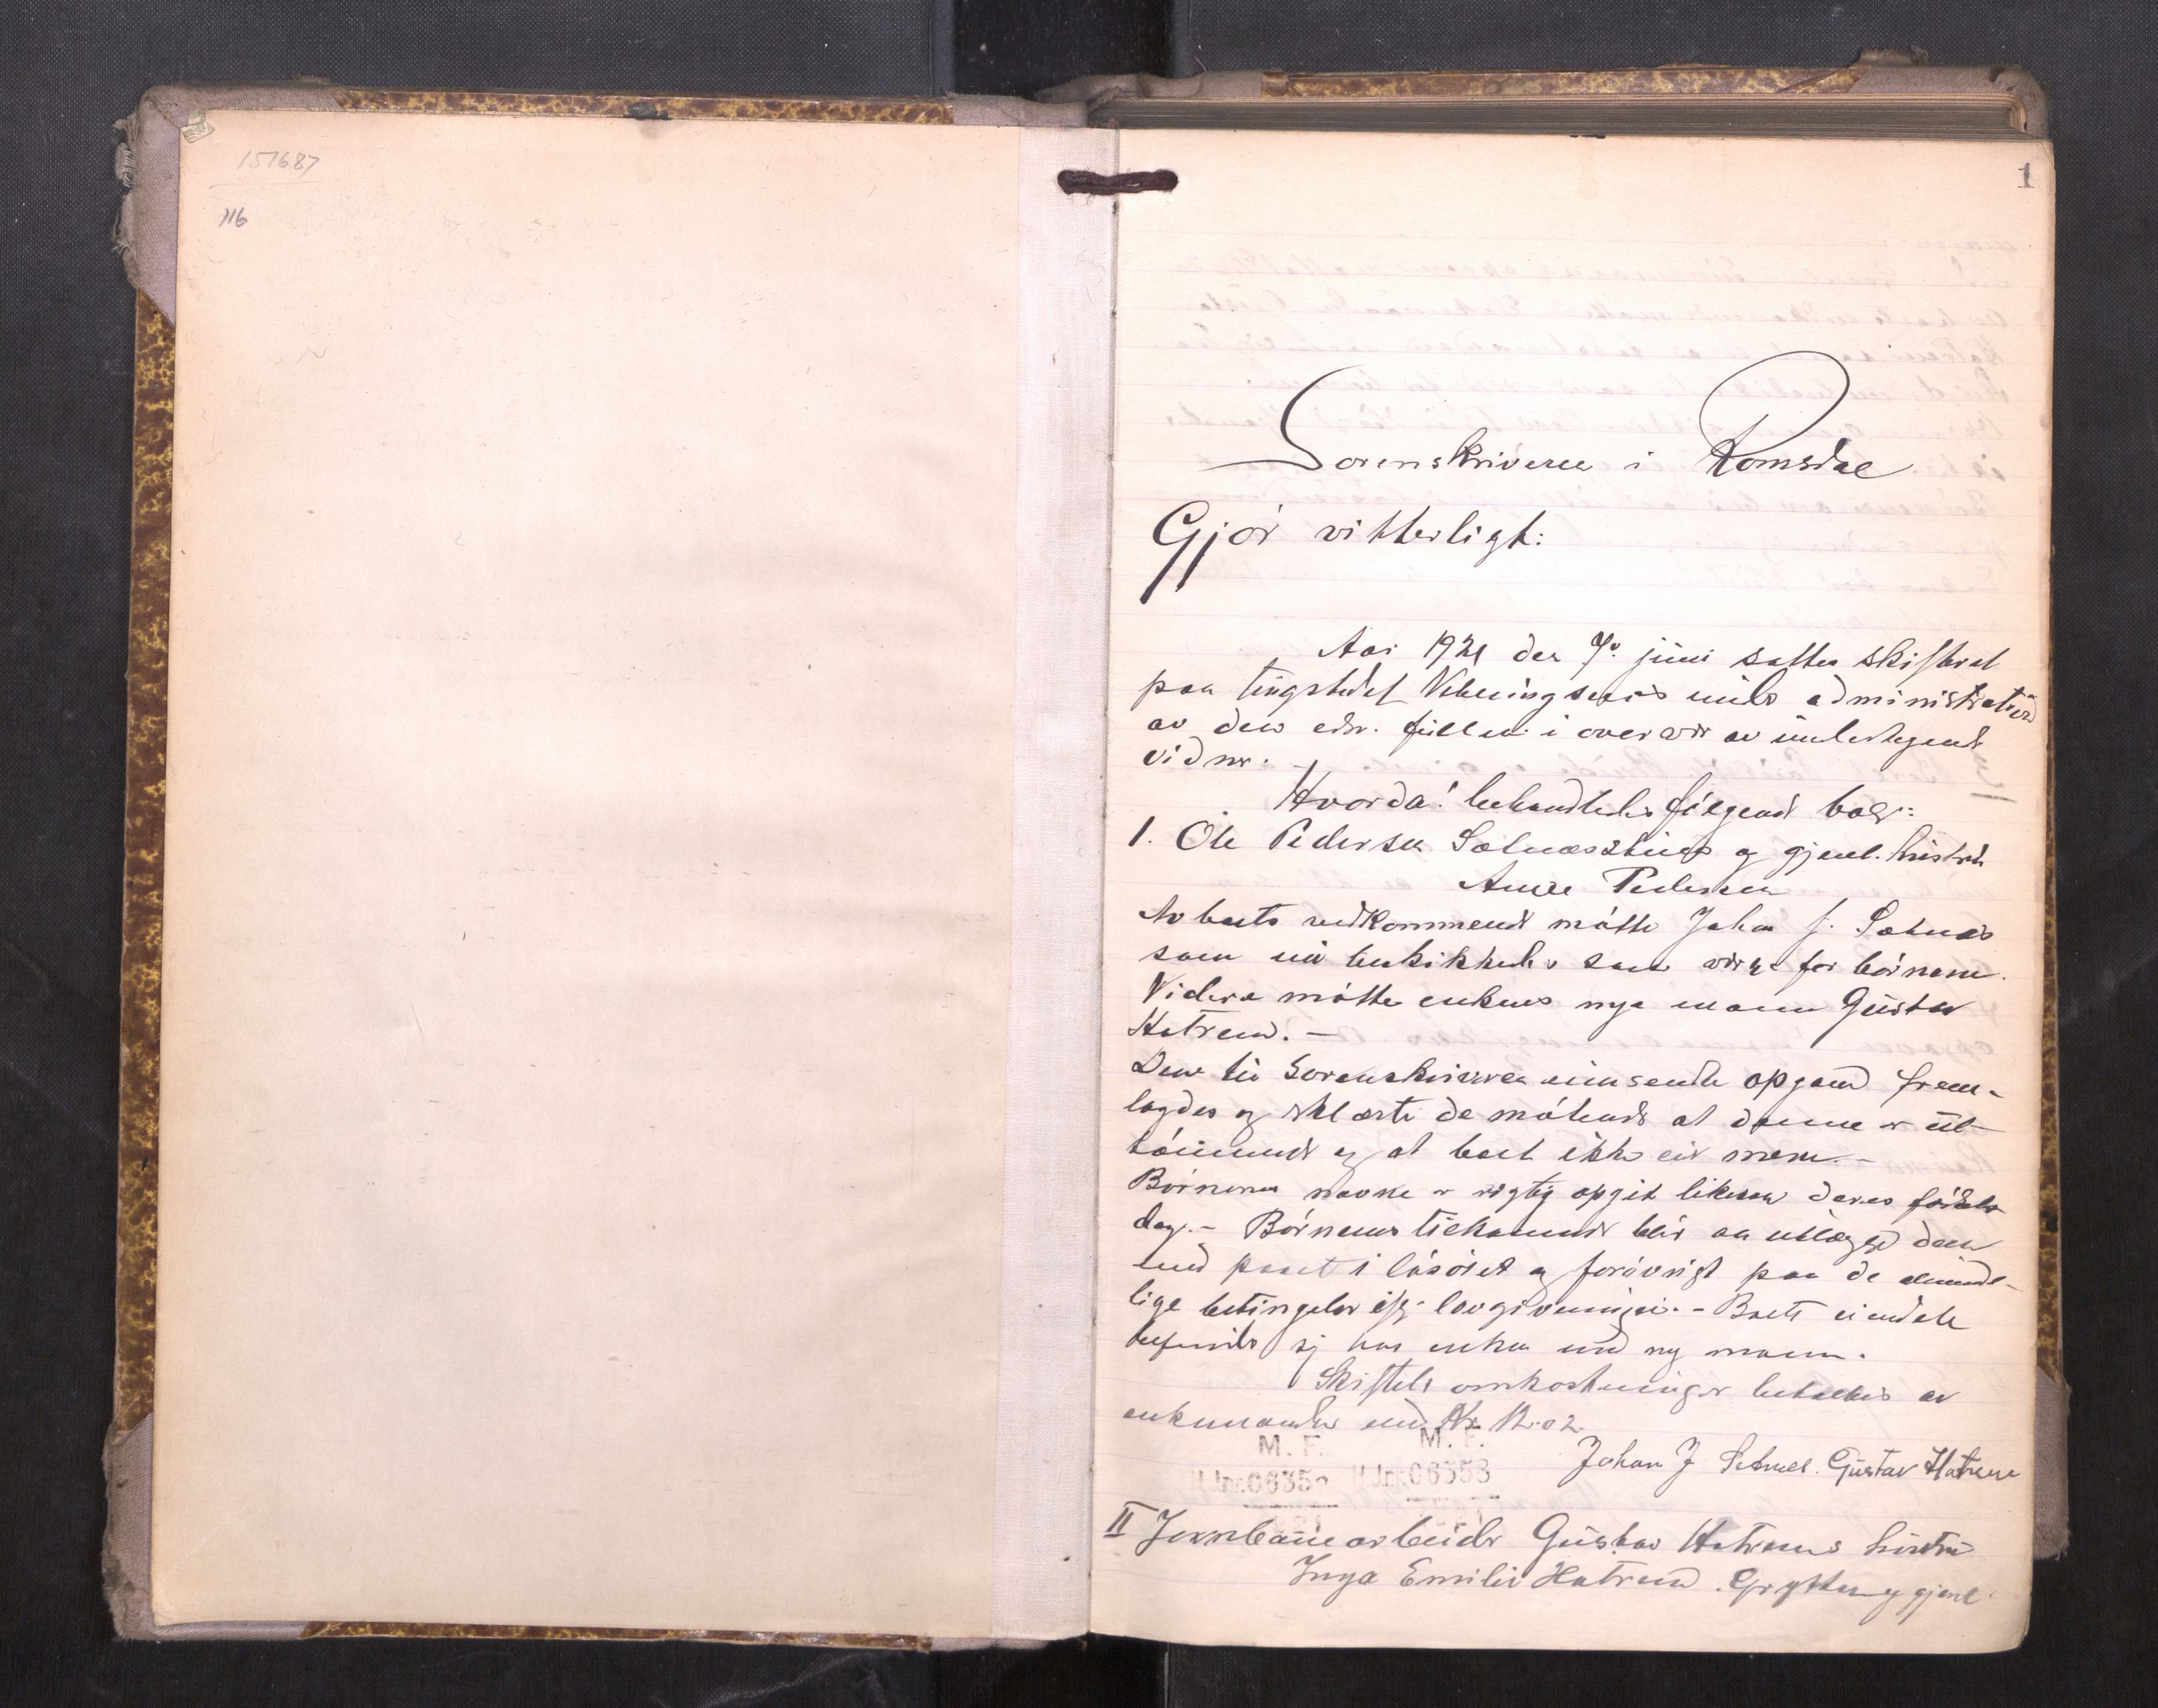 151687
116
1
Sorenskriveren i Romsdal
Gjör vitterligt:
Aar 1921 den 7de juni sattes skifteret
paa tingstedet Veblungsnes under administration
av den edsv. fuldm. i overvær av undertegnede
vidner.
Hvorda! behandledes følgende boer:
1. Ole Pedersen Sætnes og gjenl. hustru
Anne Pedersen
Av boets vedkommende mötte Johan J. Sætnes
som nu beskikkedes som værge for börnene.
Videre mötte enkens nye mann Gustav
Hatrem. -
Den til Sorenskriveren innsendte opgave frem-
lagdes og erklærte de mötende at denne er ut-
tömmende og at boet ikke eier mere. -
Börnenes navne er rigtig opgit likesom deres födsels
dag. - Börnenes tilkommende blir at utlægge dem
med pant i lösöret og forövrigt paa de almind-
lige betingelser ifg. lovgivningen. - Boets eiendele
befinder sig hos enken med ny mann.
Skiftets omkostninger betaltes av
enkemanden med Kr. 12.02.
M. F. M. F.
H.Jnr.0635 H.Jnr.06358
Johan J Sætnes. Gustav Hatrem
II Jernbanearbeider Gustav Hatrems hustru
Inga Emilie Hatrem. Grytten og gjenl.